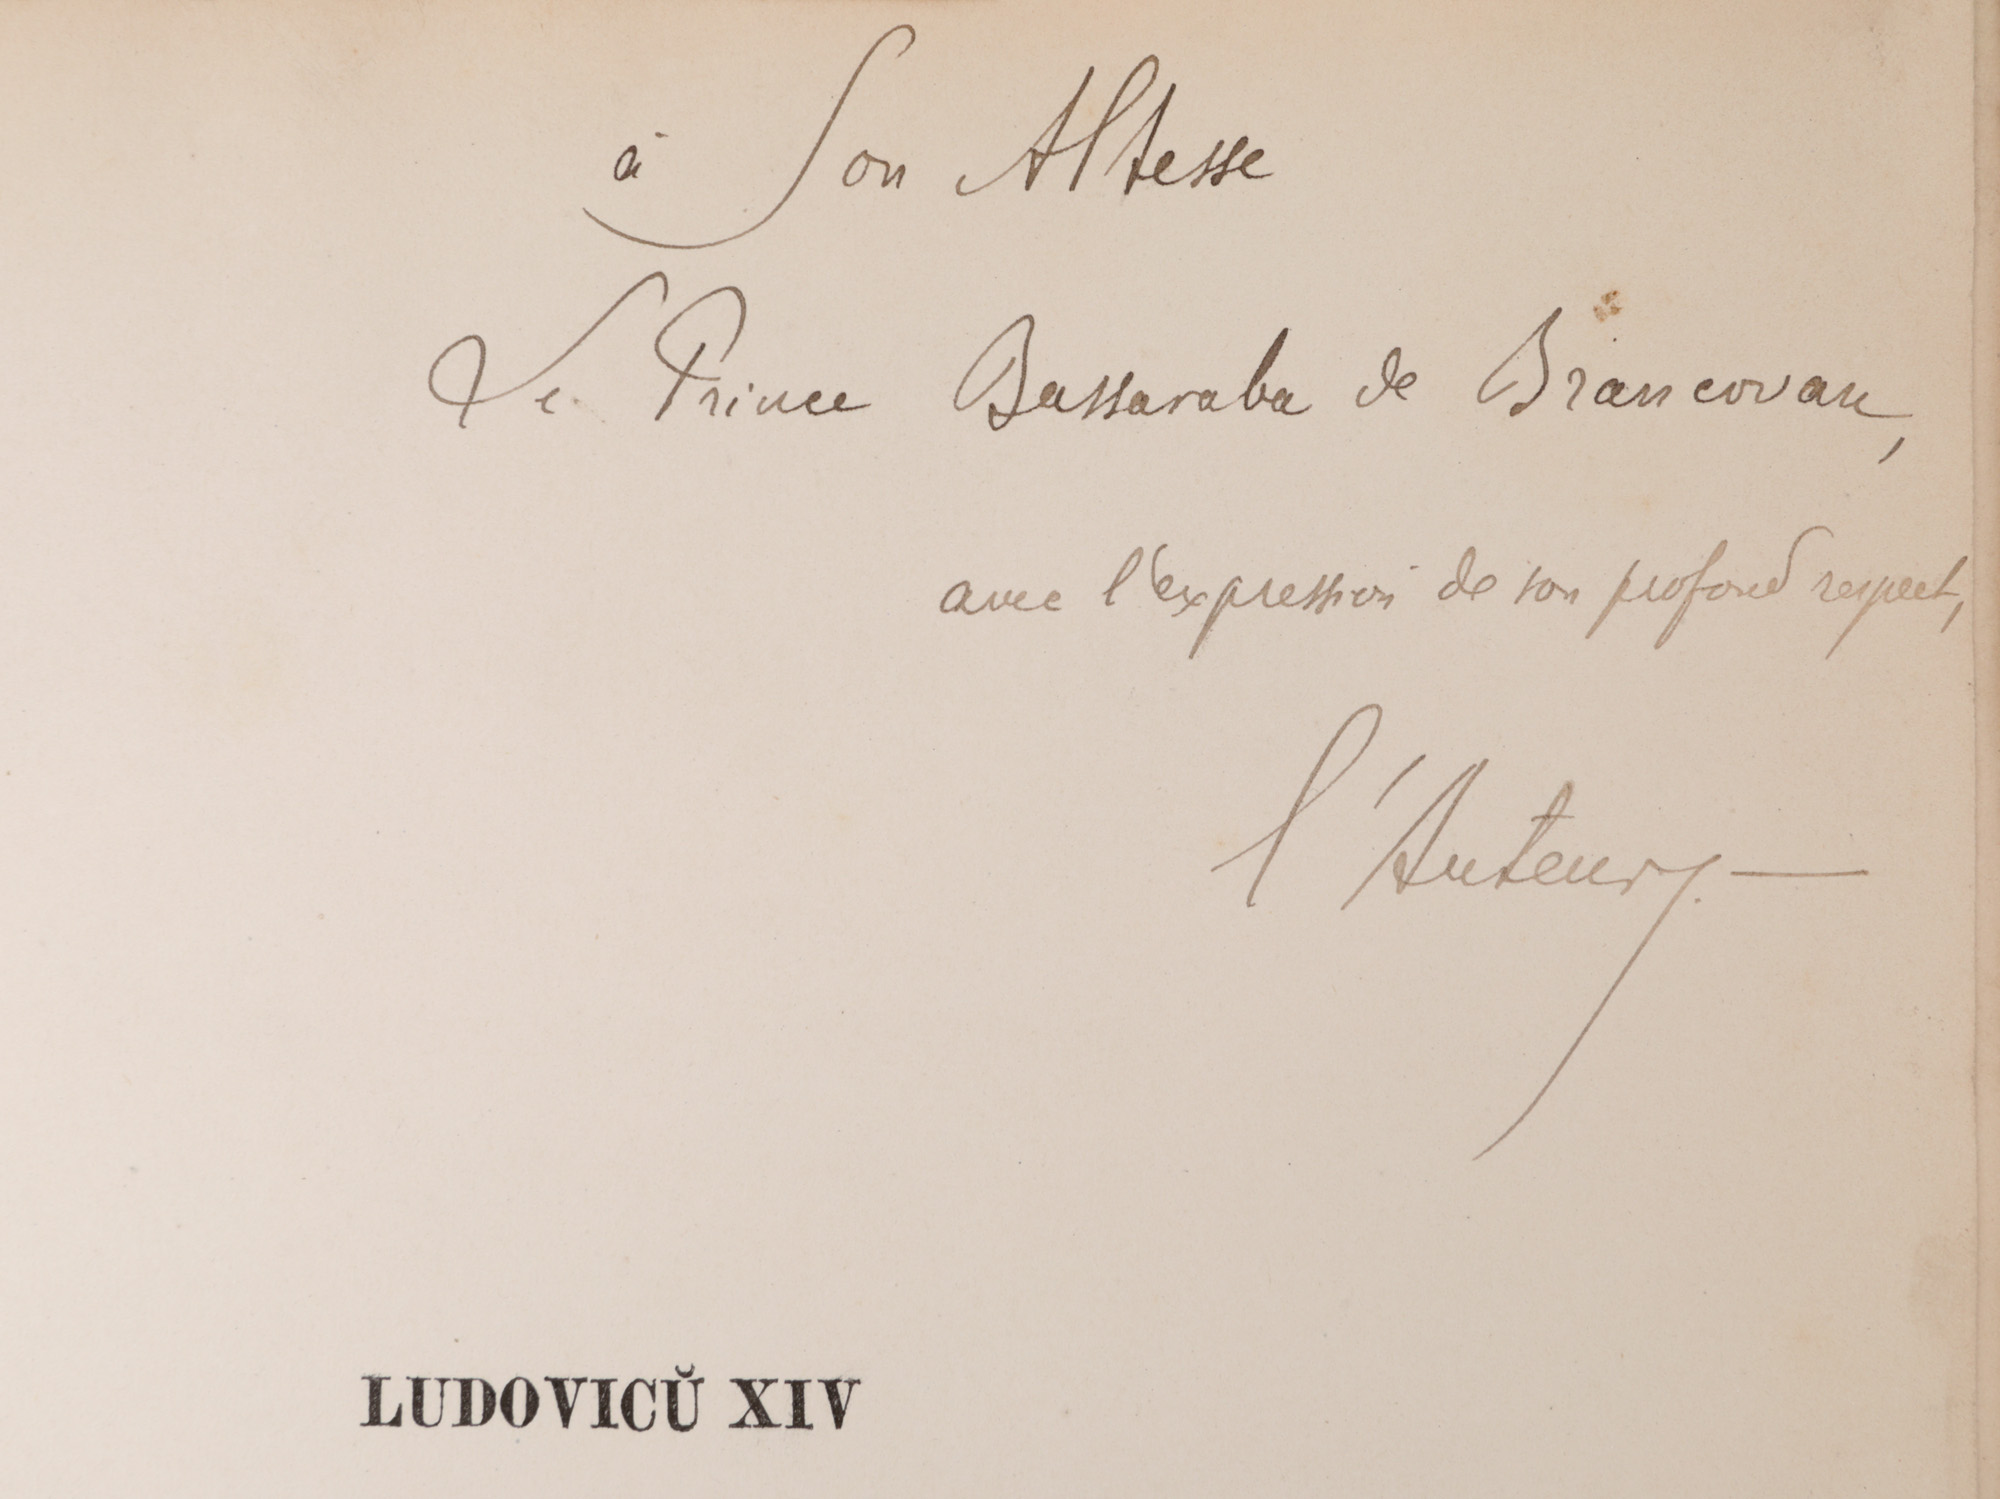 à Son Altesse
Le Prince Bassaraba de Brancovan,
avec l'expression de son profond respect,
l'Auteur. —
LUDOVICŬ XIV